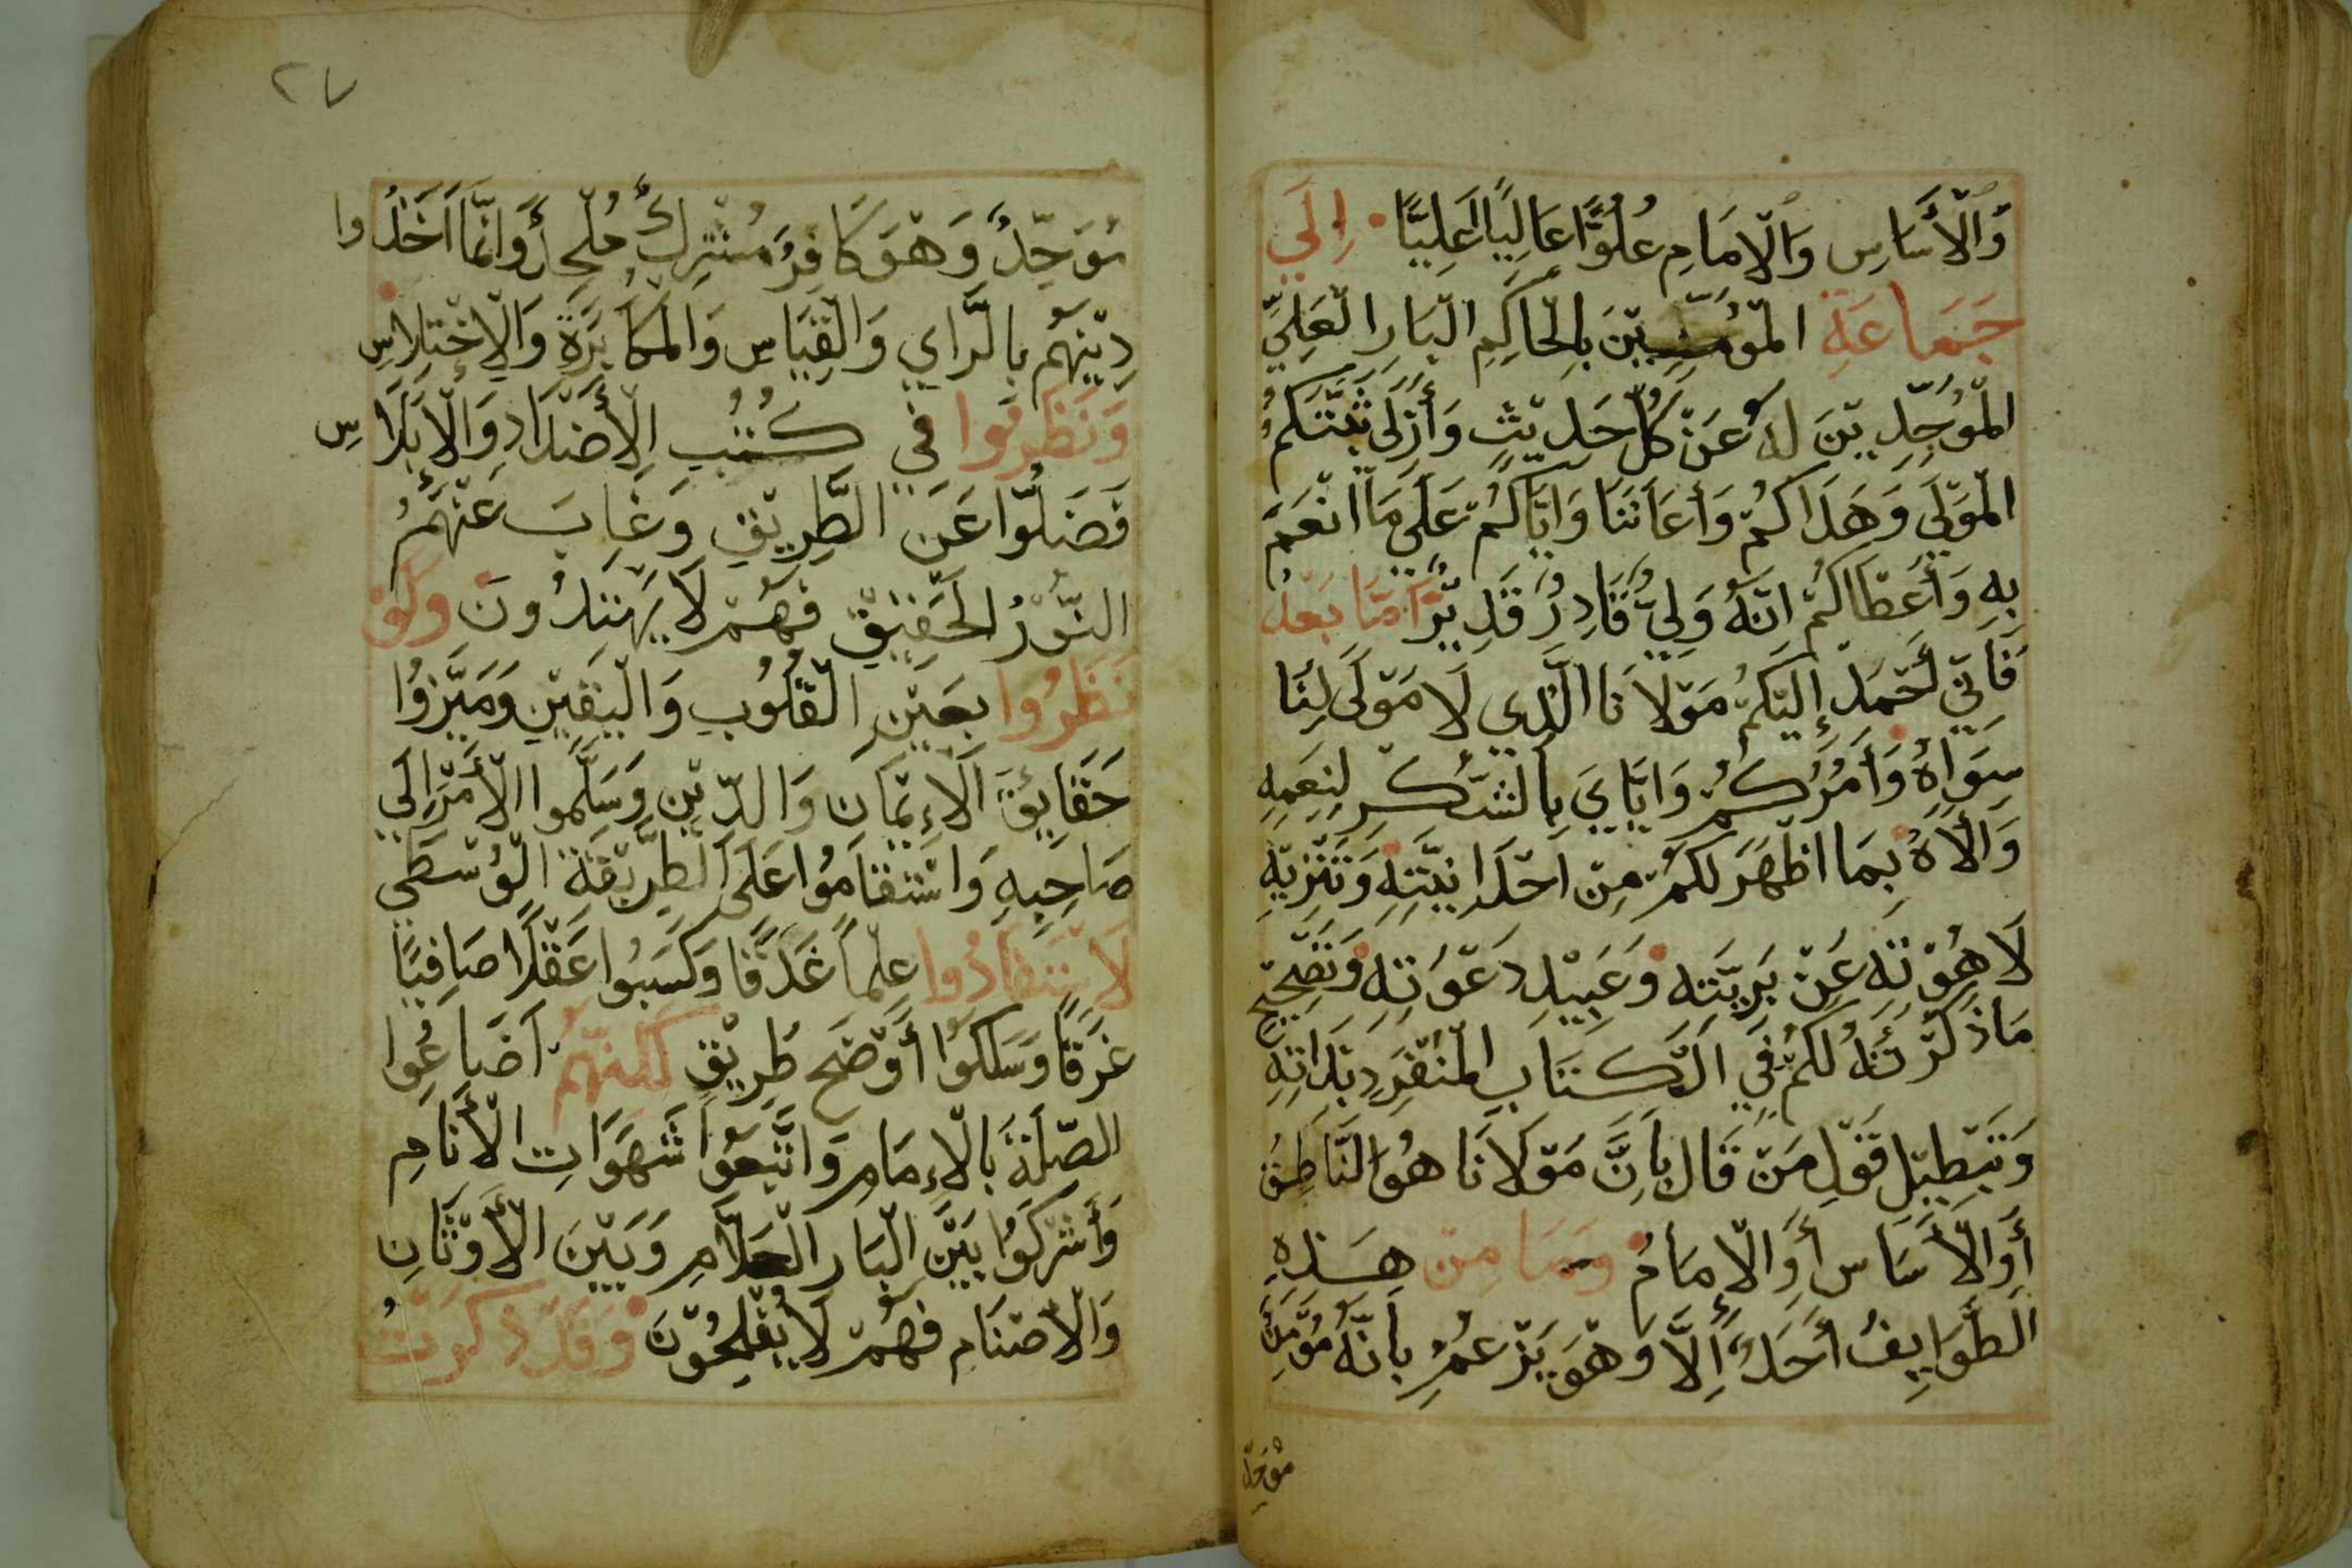 وَالْأَسَاسِ وَالْامَامِ عُلُوًّا عَالِيًا عَلِيًّا اِلَي
جَمَاعَةِ الْمُؤمِنِيْنَ بِالْحَاكِمِ الْبَارِ الْعَلِيّ
الْمُوَحِّدِيْنَ لَهُ عَنْ كُلِّ حَدِيْثٍ وَأَزَلٍ ثَبَّتَكُمُ
الْمَوْلَي وَهَدَاكُمْ وَأَعَانَنَا وَايَّاكُمْ عَلَي مَا انْعَمَ
بِهِ وَأَعْطَاكُمْ انَّهُ وَلِيٌّ قَادِرٌ قَدِيْرٌ امَّا بَعْدُ
فَانِّي أَحْمَدُ إِلَيْكُمْ مَوْلَانَا الَّذِي لَا مَوْلَى لَنَا
سِوَاهُ وَأَمُرُكُمْ وَايَّايَ بِالشُّكْرِ لِنِعَمِهِ
وَالَاهُ بِمَا اظْهَرَ لَكُمْ مِنْ احْدَانِيَّتِهِ وَتَنْزِيْهِ
لَاهُوْتِهِ عَنْ بَرِيَّتِهِ وَعَبِيْدِ دَعْوَتِهِ وَتَصْحِيْحِ
مَاذَكَرْتُهُ لَكُمْ فِي الْكِتَابِ الْمُنْفَرِدِ بِذَاتِهِ
وَتَبْطِيْلِ قَوْلِ مَنْ قَالَ بِأَنَّ مَوْلَانَا هُوَ النَّاطِقُ
أَوِ الْأَسَاس أَوِ الْامَامُ وَمَا مِنْ هَذِهِ
الطَّوَايِفُ أَحَدٌ إِلَّا وَهْوَ يَزْعُمُ بِأَنَّهُ مُؤْمِنٌ
مُوَحِّدٌ
٢٧
مُوَحِّدٌ وَهْوَ كَافِرٌ مُشْرِكٌ مُلْحِدٌ وَانَّمَا اخَذُوا
دِيْنَهُمْ بِالرَّاي وَالْقِيَاسِ وَالْمُكَابَرَةِ وَالْاِخْتِلَاسِ
وَنَظَرُوا فِي كُتُبِ الْأَضْدَادِ وَالْأَبْلَاسِ
فَضَلُّوا عَنِ الطَّرِيْقِ وَغَابَ عَنْهُمُ
النُّوْرُ الْحَقِيْقِ فَهُمْ لَا يَهْتَدُونَ وَلَوْ
نَظَرُوا بِعَيْنِ الْقُلُوبِ وَالْيَقِيْنِ وَمَيَّزُوا
حَقَايِقَ الْاِيْمَانِ وَالدِّيْنِ وَسَلَّمُوا الْأَمْرَ الَي
صَاحِبِهِ وَاسْتَقَامُوا عَلَى الطَّرِيْقَةِ الْوُسْطَي
لَاسْتَفَادُوا عِلْمًا غَدَقًا وَكَسَبُوا عَقْلًا صَافِيًا
غَرَقًا وَسَلَكُوا أَوْضَحَ طَرِيْقٍ لَكِنَّهُمْ اضَاعُوا
الصِّلَةَ بِالْاِمَامِ وَاتَّبَعُوا شَهَوَاتِ الْأَنَامِ
وَأَشْرَكُوا بَيْنَ الْبَارِ الْعَلَّامِ وَبَيْنَ الْأَوْثَانِ
وَالْأَصْنَامِ فَهُمْ لَا يُفْلِحُوْنَ وَقَدْ ذَكَرْتُ